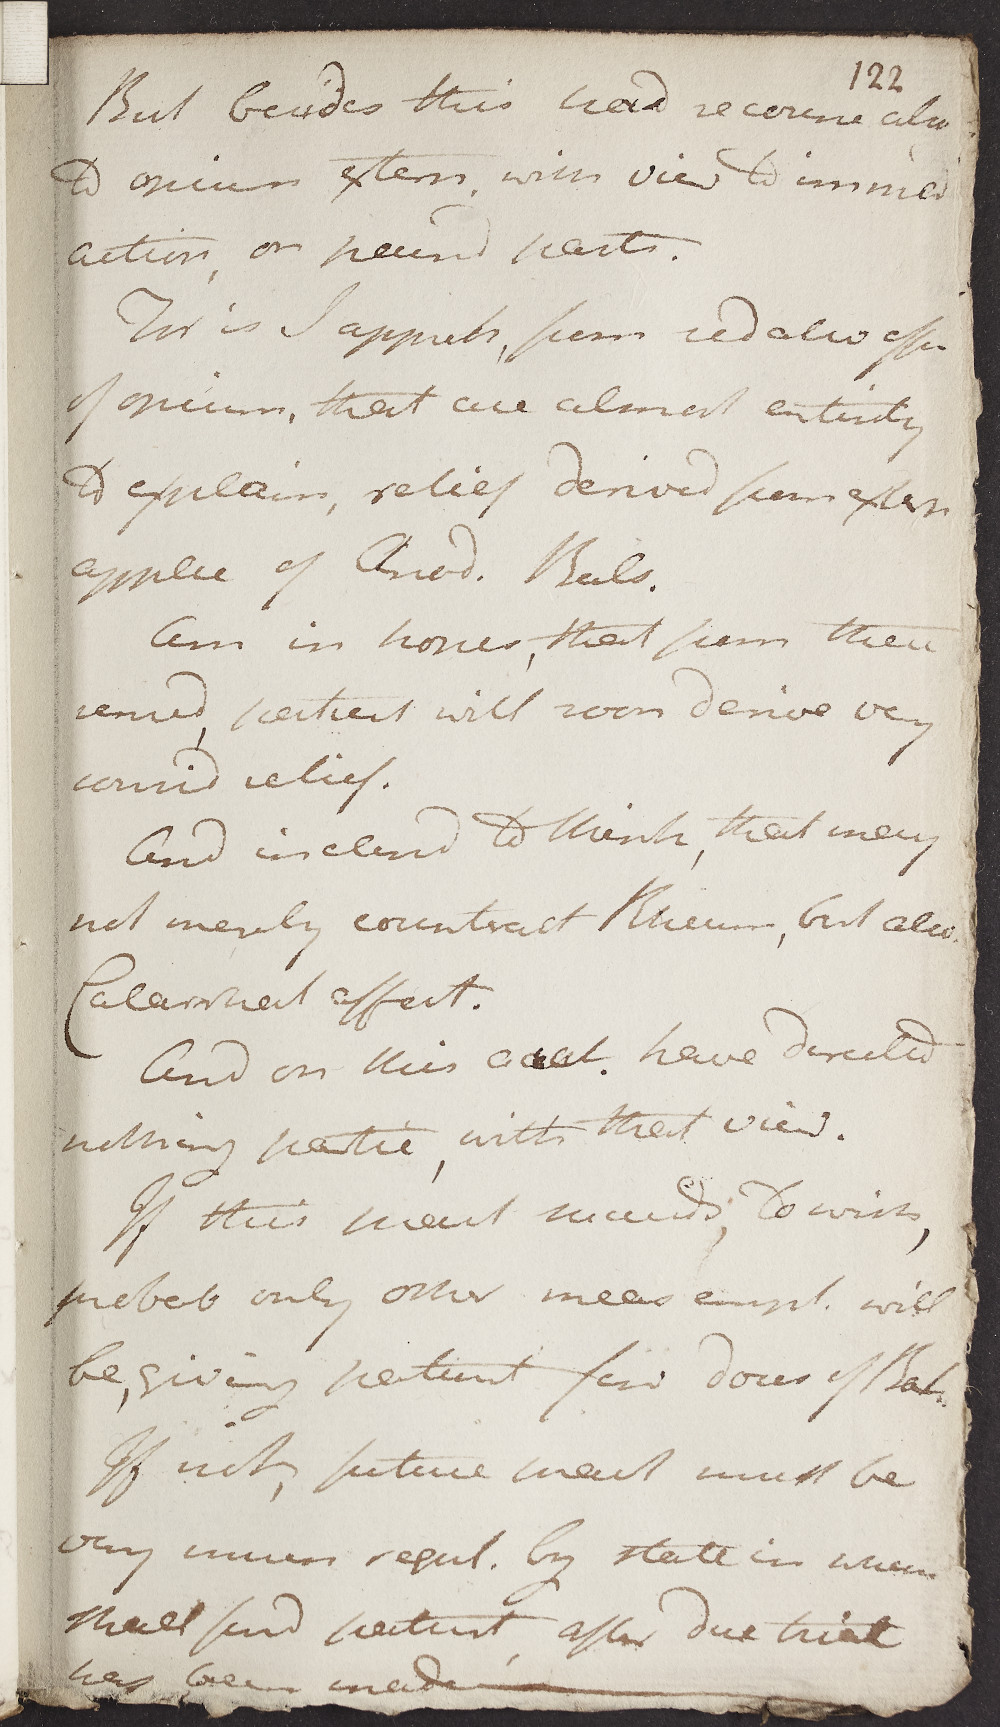 122
But besides this had recourse also
to opium extern, with view to immed
action, on pained parts.
For is I appreh, from sed also effer
of opium, that are almost entirely
to explain, relief derived from extern
applic of Anod. Bals.
Am in hopes, that from these
remed, patient will soon derive very
consid relief.
And inclend to think, that may
not merely counteract Rheum, but also
Catarrhal affect.
And on this acct. have directed
nothing partic, with that view.
If this pract succeeds, to wish,
probab only other meas empl. will
be, giving patient few doses of Bark.
If not, future pract must be
very much regul. by state in which
shall find patient, after due trial
has been made